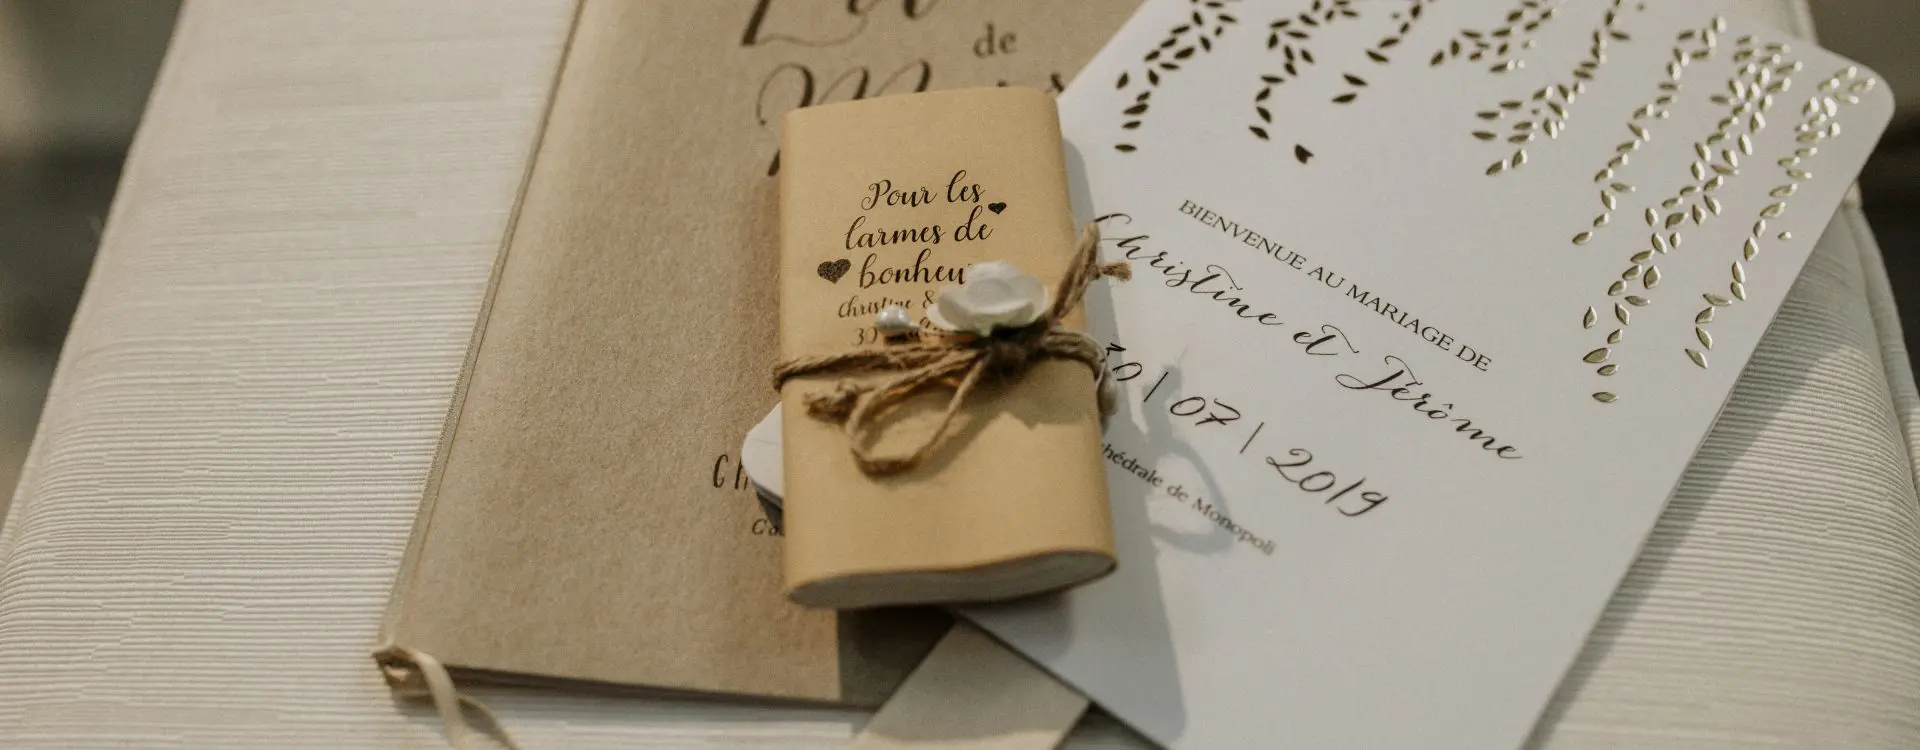 de
Pour les
larmes de
bonheu
Christine &
30
BIENVENUE AU MARIAGE DE
Christine et Jérôme
30 | 07 | 2019
thédrale de Monopoli